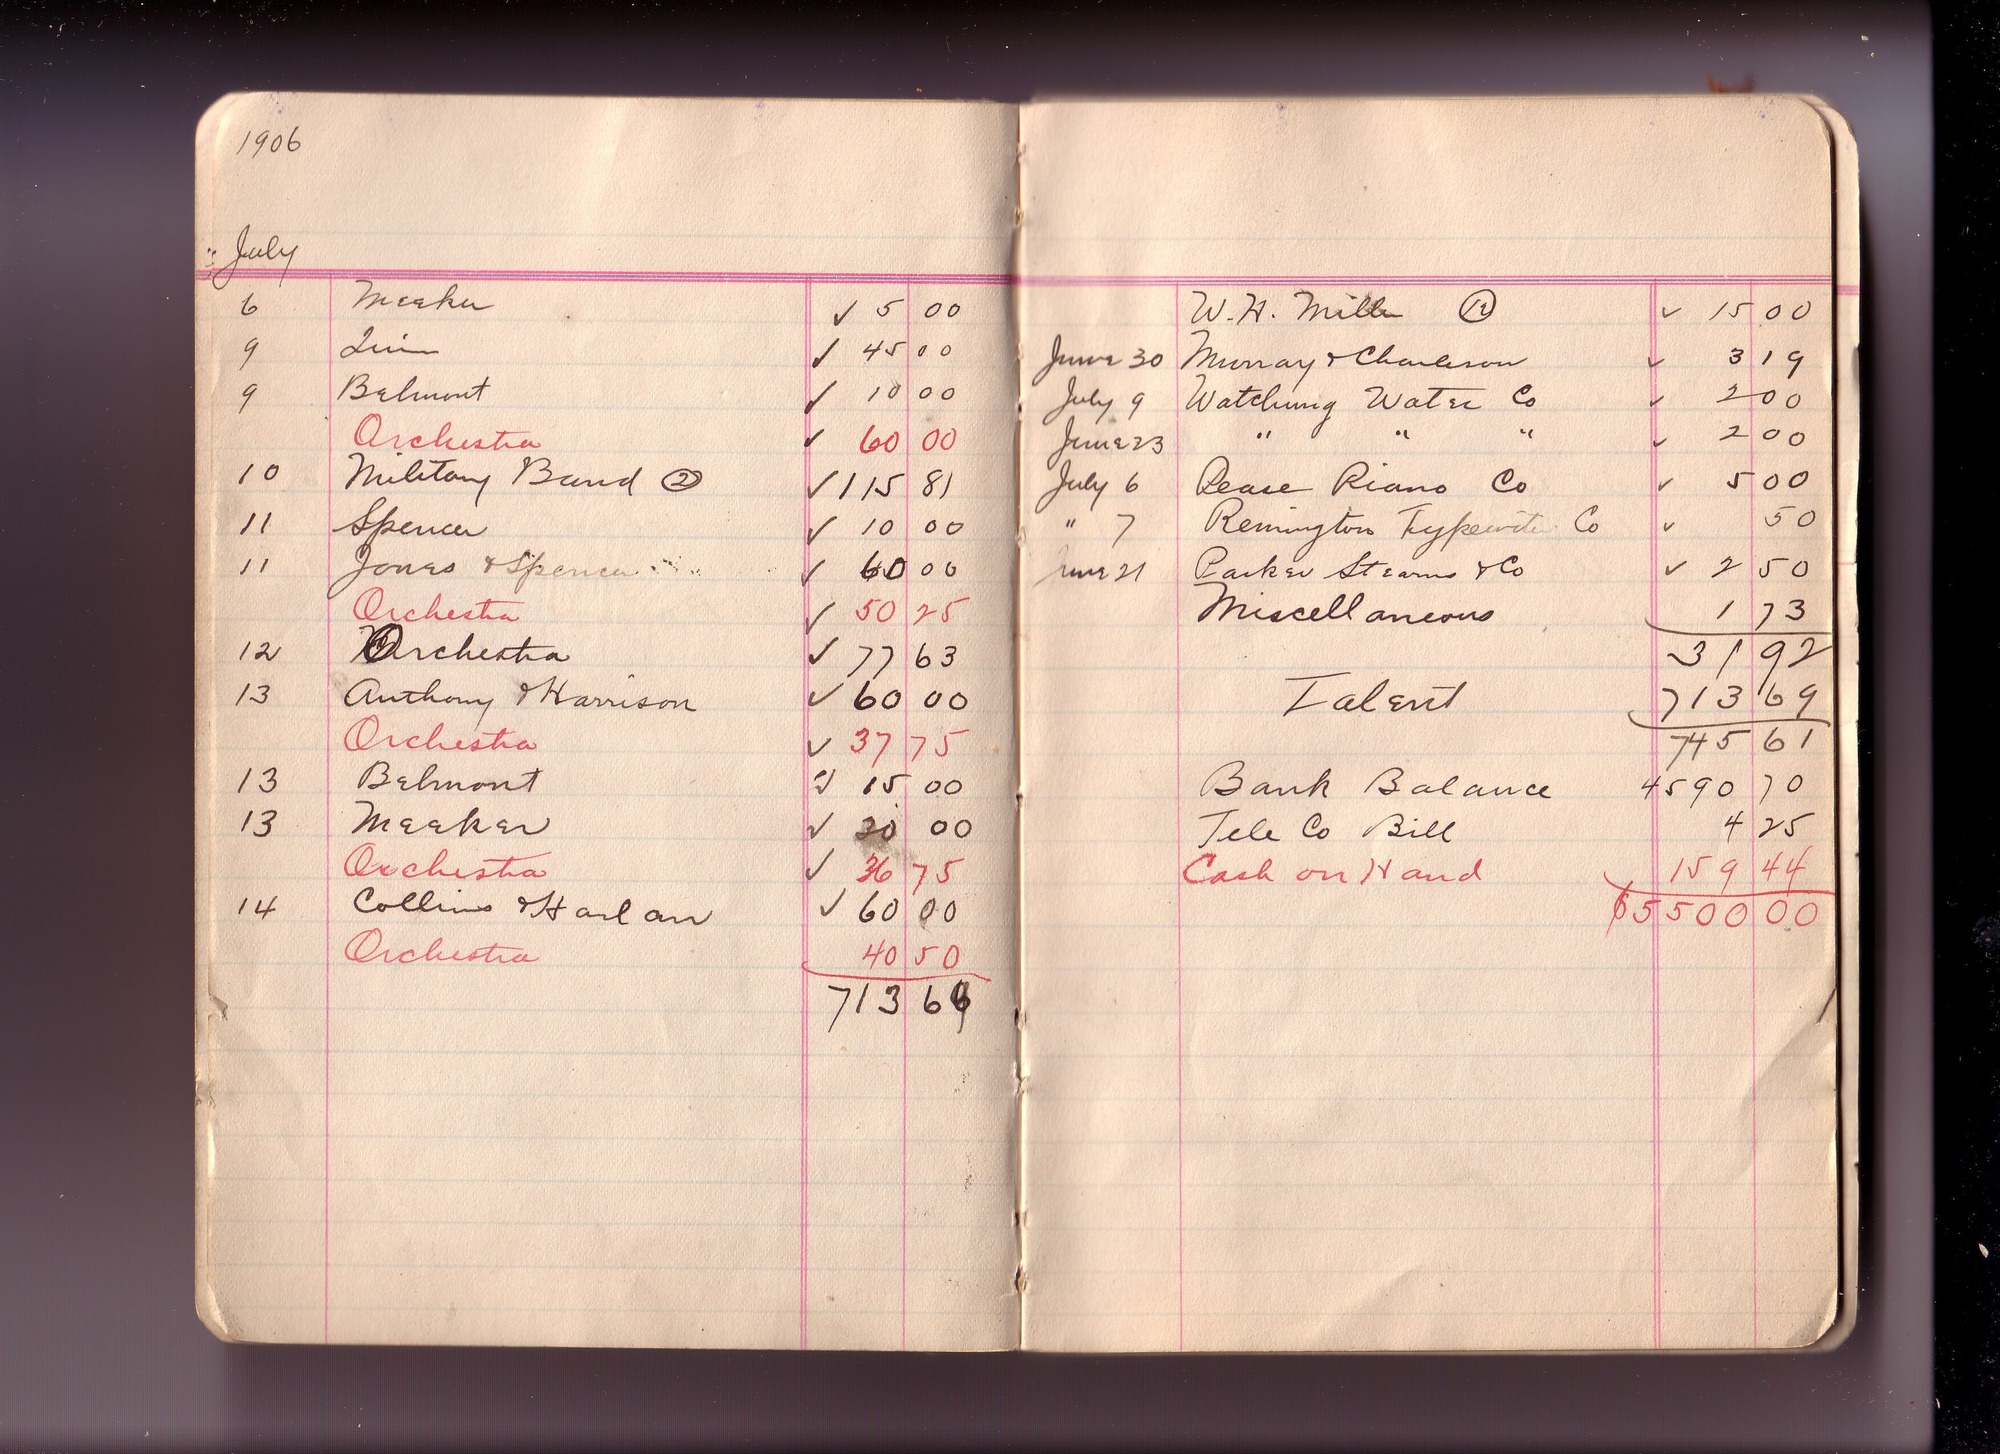 1906
July
6 Meeker ✓ 5 00
9 ✓ 45 00
9 Belmont ✓ 10 00
Orchestra ✓ 60 00
10 Military Band ② ✓ 115 81
11 Spencer ✓ 10 00
11 Jones & Spencer ✓ 60 00
Orchestra ✓ 50 25
12 Orchestra ✓ 77 63
13 Anthony & Harrison ✓ 60 00
Orchestra ✓ 37 75
13 Belmont ✓ 15 00
13 Meeker ✓ 30 00
Orchestra ✓ 36 75
14 Collins & Harlan ✓ 60 00
Orchestra 40 50
713 69
W. H. ✓ 15 00
June 30 Murray & ✓ 3 19
July 9 Watchung Water Co ✓ 2 00
June 23 " " " ✓ 2 00
July 6 Pease Piano Co ✓ 5 00
" 7 Remington Typewriter Co ✓ 50
June 21 Parker Stearns & Co ✓ 2 50
Miscellaneous 1 73
31 92
Talent 713 69
745 61
Bank Balance 4590 70
Tele Co Bill 4 25
Cash on Hand 159 44
$5500 00